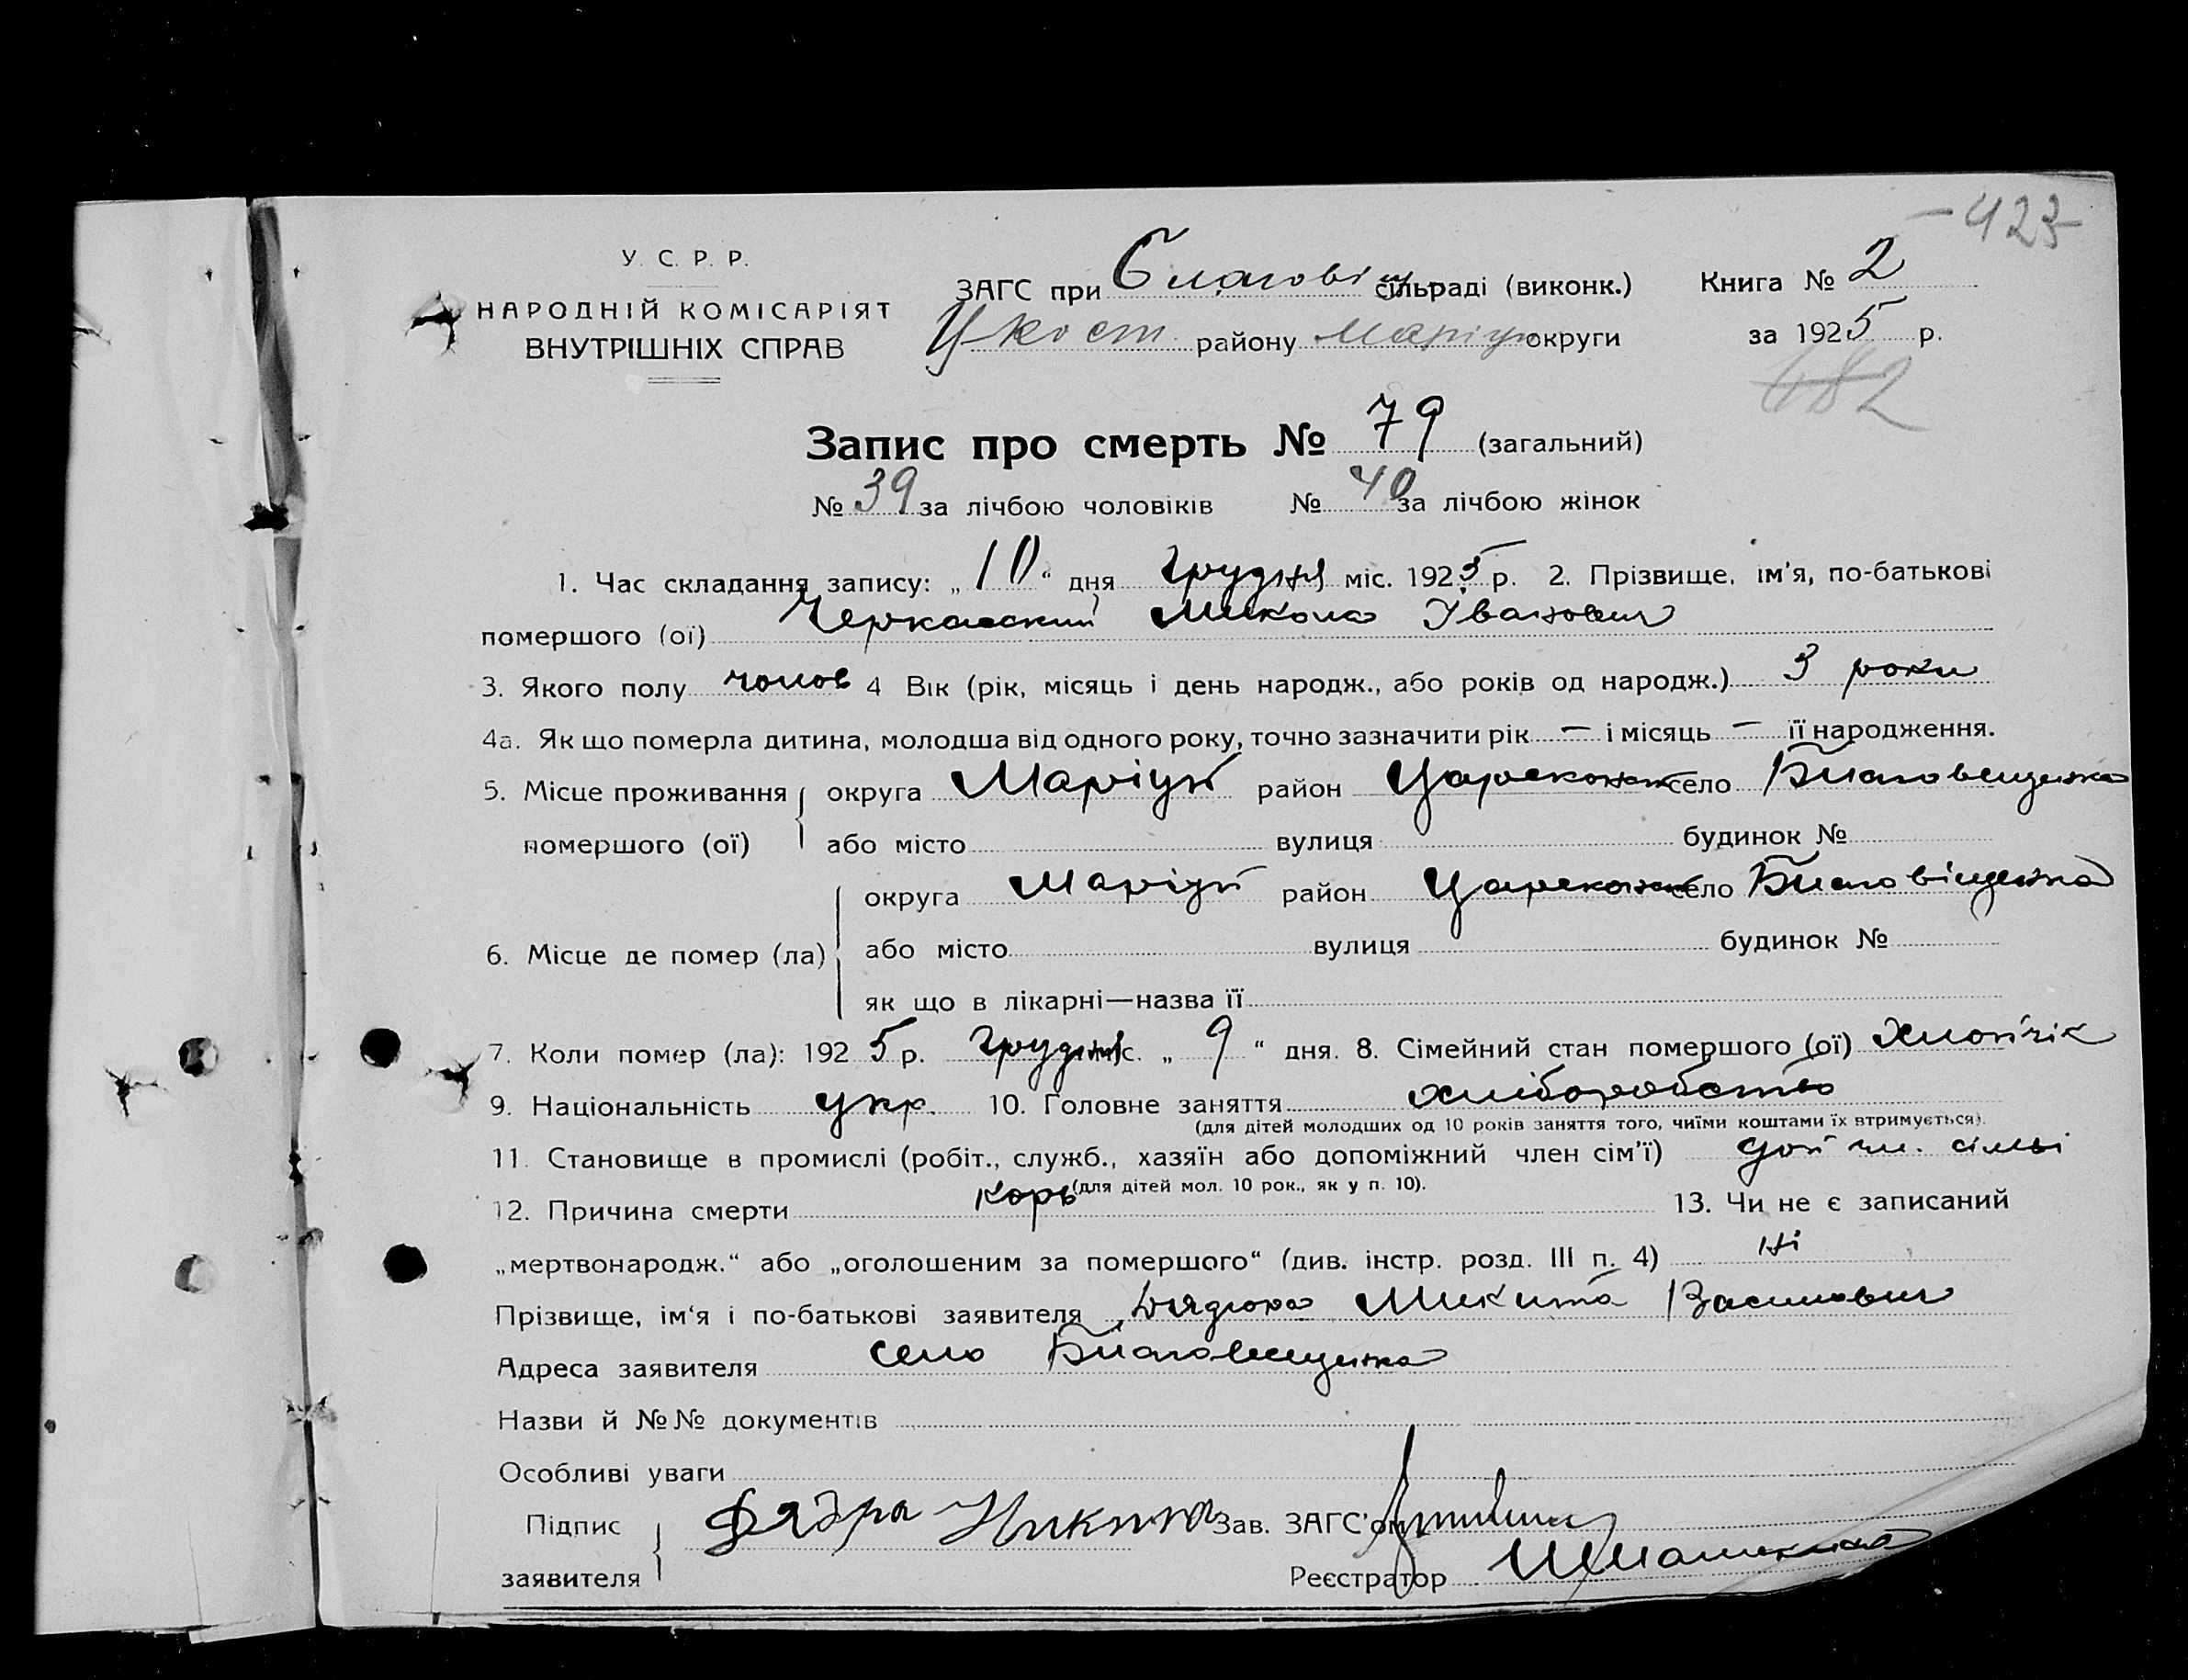 -423-
У. С. Р. Р.
НАРОДНІЙ КОМІСАРІЯТ
ВНУТРІШНІХ СПРАВ
ЗАГС при Благовіщ сільраді (виконк.) Книга № 2
Цкост району Маріуп округи за 1925 р.
482
Запис про смерть № 79 (загальний)
№ 39 за лічбою чоловіків № 40 за лічбою жінок
1. Час складання запису: „10“ дня грудня міс. 1925 р. 2. Прізвище, ім'я, по-батькові
помершого (ої) Черкаський Микола Іванович
3. Якого полу чолов 4 Вік (рік, місяць і день народж., або років од народж.) 3 роки
4а. Як що померла дитина, молодша від одного року, точно зазначити рік — і місяць — її народження.
5. Місце проживання округа Маріуп район Царекон село Благовещенка
помершого (ої) або місто вулиця будинок №
округа Маріуп район Царекон село Благовіщенка
6. Місце де помер (ла) або місто вулиця будинок №
як що в лікарні—назва її
7. Коли помер (ла): 1925 р. грудня міс. „9“ дня. 8. Сімейний стан помершого (ої) хлопчік
9. Національність укр. 10. Головне заняття хліборобство
(для дітей молодших од 10 років заняття того, чиїми коштами їх втримується).
11. Становище в промислі (робіт., служб., хазяїн або допоміжний член сім'ї) доп чл. сімьі
(для дітей мол. 10 рок., як у п. 10).
12. Причина смерти корь 13. Чи не є записаний
„мертвонародж.“ або „оголошеним за помершого“ (див. інстр. розд. III п. 4) ні
Прізвище, ім'я і по-батькові заявителя Микита Василович
Адреса заявителя село Благовещенка
Назви й №№ документів
Особливі уваги
Підпис Дядра Никита Зав. ЗАГС'ом
заявителя Реєстратор